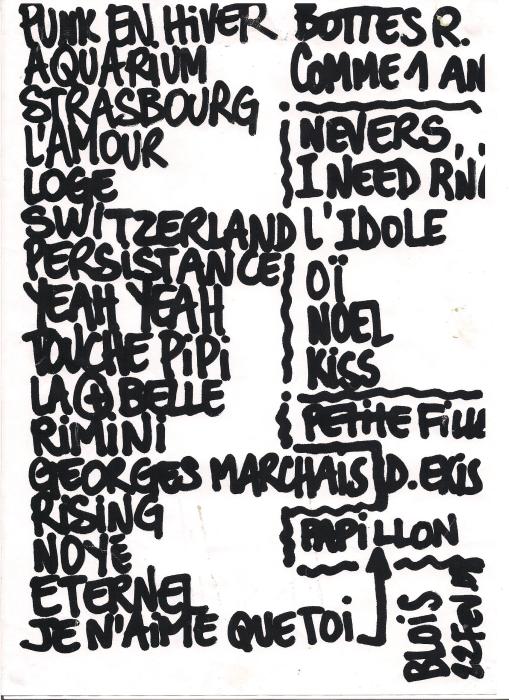 PUNK EN HiVER
AQUARIUM
STRASBOURG
L'AMOUR
LOGE
SWITZERLAND
PERSISTANCE
YEAH YEAH
TOUCHE PiPi
LA + BELLE
RiMiNi
GEORGES MARCHAIS
RISING
NOYÉ
ETERNEL
JE N'AiME QUE TOi
BOTTES R.
COMME 1 AN
NEVERS,
I NEED
L'IDOLE
OÏ
NOEL
KiSS
PETITE
D.
PAPiLLON
BLOIS
22 FEV